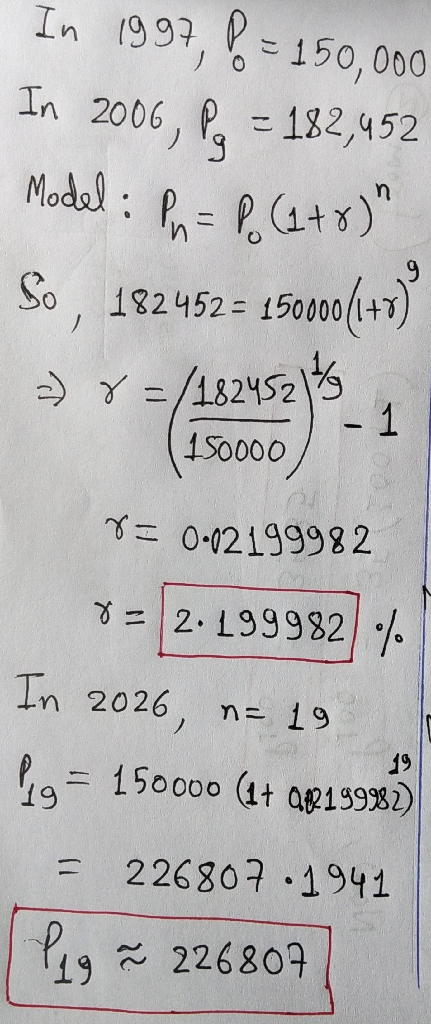 In 1997, P₀ = 150,000
In 2006, P₉ = 182,452
Model : Pₙ = P₀ (1+r)ⁿ
So, 182452 = 150000 (1+r)⁹
⇒ r = (182452/150000)^(1/9) - 1
r = 0.02199982
r = 2.199982 %
In 2026, n = 19
P₁₉ = 150000 (1+ 0.02199982)¹⁹
= 226807.1941
P₁₉ ≈ 226807